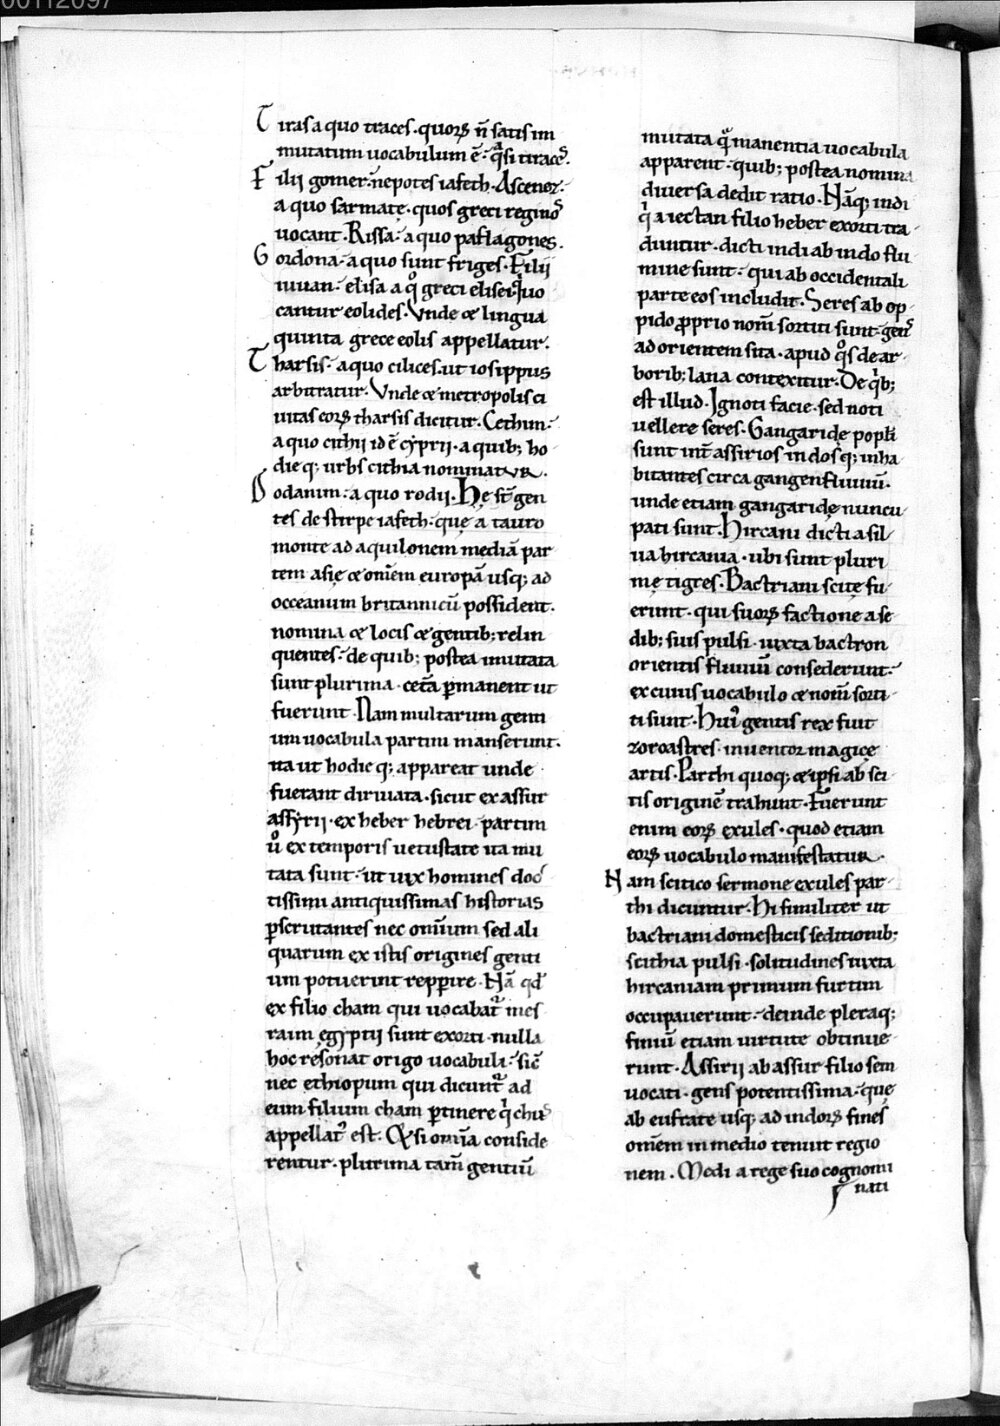 00112097
Tiras a quo traces· quoꝝ ñ satis im
mutatum uocabulum ē· qͣsi tiraceˢ.
Filii gomer· nepotes iafeth· Ascenez·
a quo sarmatę· quos greci reginoˢ
uocant· Rifsa· a quo paflagones.
Gordona· a quo sunt friges· Filii
iuuan· elisa a qͦ greci elisei· quo
cantur eolides· Vnde & lingua
quinta grece eolis appellatur.
Tharsis· a quo cilices· ut iosippus
arbitratur· Vnde & metropolis ci
uitas eoꝝ tharsis dicitur· Cethim·
a quo cithii id ē cyprii· a quib; ho
die q; urbs cithia nominatur.
Dodanim· a quo rodii· Hę sť gen
tes de stirpe iafeth· quę a tauro
monte ad aquilonem mediā par
tem asię & om̄em europā usq; ad
occeanum britannicū possident·
nomina & locis & gentib; relin
quentes· de quib; postea inmutata
sunt plurima· cet̄a ꝑmanent ut
fuerunt· Nam multarum genti
um uocabula partim manserunt·
ita ut hodie q; appareat unde
fuerant diriuata· sicut ex assur
assyrii· ex heber hebrei· partim
ů ex temporis uetustate ita mu
tata sunt· ut uix homines doc̄
tissimi antiquissimas historias
ꝑscrutantes nec omniū sed ali
quarum ex istis origines genti
um potuerint repꝑire· Nā qď
ex filio cham qui uocabat᷑ mes
raim egyptii sunt exorti· nulla
hoc resonat origo uocabuli· sic̄
nec ethiopum qui dicunt᷑ ad
eum filium cham ꝑtinere q̇ chuˢ
appellat᷑ est· Et si om̄ia conside
rentur· plurima tam̄ gentiū
mutata qͣ̄ manentia uocabula
apparent· quib; postea nomina
diuersa dedit ratio· Nāq; indi
q̇ a iectan filio heber exorti tra
duntur· dicti indi ab indo flu
mine sunt· qui ab occidentali
parte eos includit· Seres ab op
pido ꝓprio nom̄ sortiti sunt· genˢ
ad orientem sita· apud qͦs de ar
borib; lana contexitur· De qͥb;
est illud· Ignoti facie· sed noti
uellere seres· Gangaridę popłi
sunt int̄ assirios indosq; inha
bitantes circa gangen fluuiū·
unde etiam gangaridę nuncu
pati sunt· Hircani dicti a sil
ua hircania· ubi sunt pluri
mę tigres· Bactriani scitę fu
erunt· qui suoꝝ factione a se
dib; suis pulsi· iuxta bactron
orientis fluuiū consederunt·
ex cuius uocabulo & nom̄ sorti
ti sunt· Hui᷒ gentis rex fuit
zoroastres· inuentor magicę
artis· Parthi quoq; & ipsi ab sci
tis originē trahunt· Fuerunt
enim eoꝝ exules· quod etiam
eoꝝ uocabulo manifestatur·
Nam scitico sermone exules par
thi dicuntur· Hi similiter ut
bactriani domesticis seditionib;
scithia pulsi· solitudines iuxta
hircaniam primum furtim
occupauerunt· deinde pleraq;
finiū etiam uirtute obtinue
runt· Assirii ab assur filio sem
uocati· gens potentissima· quę
ab eufrate usq; ad indoꝝ fines
om̄em in medio tenuit regio
nem· Medi a rege suo cognomi
nati